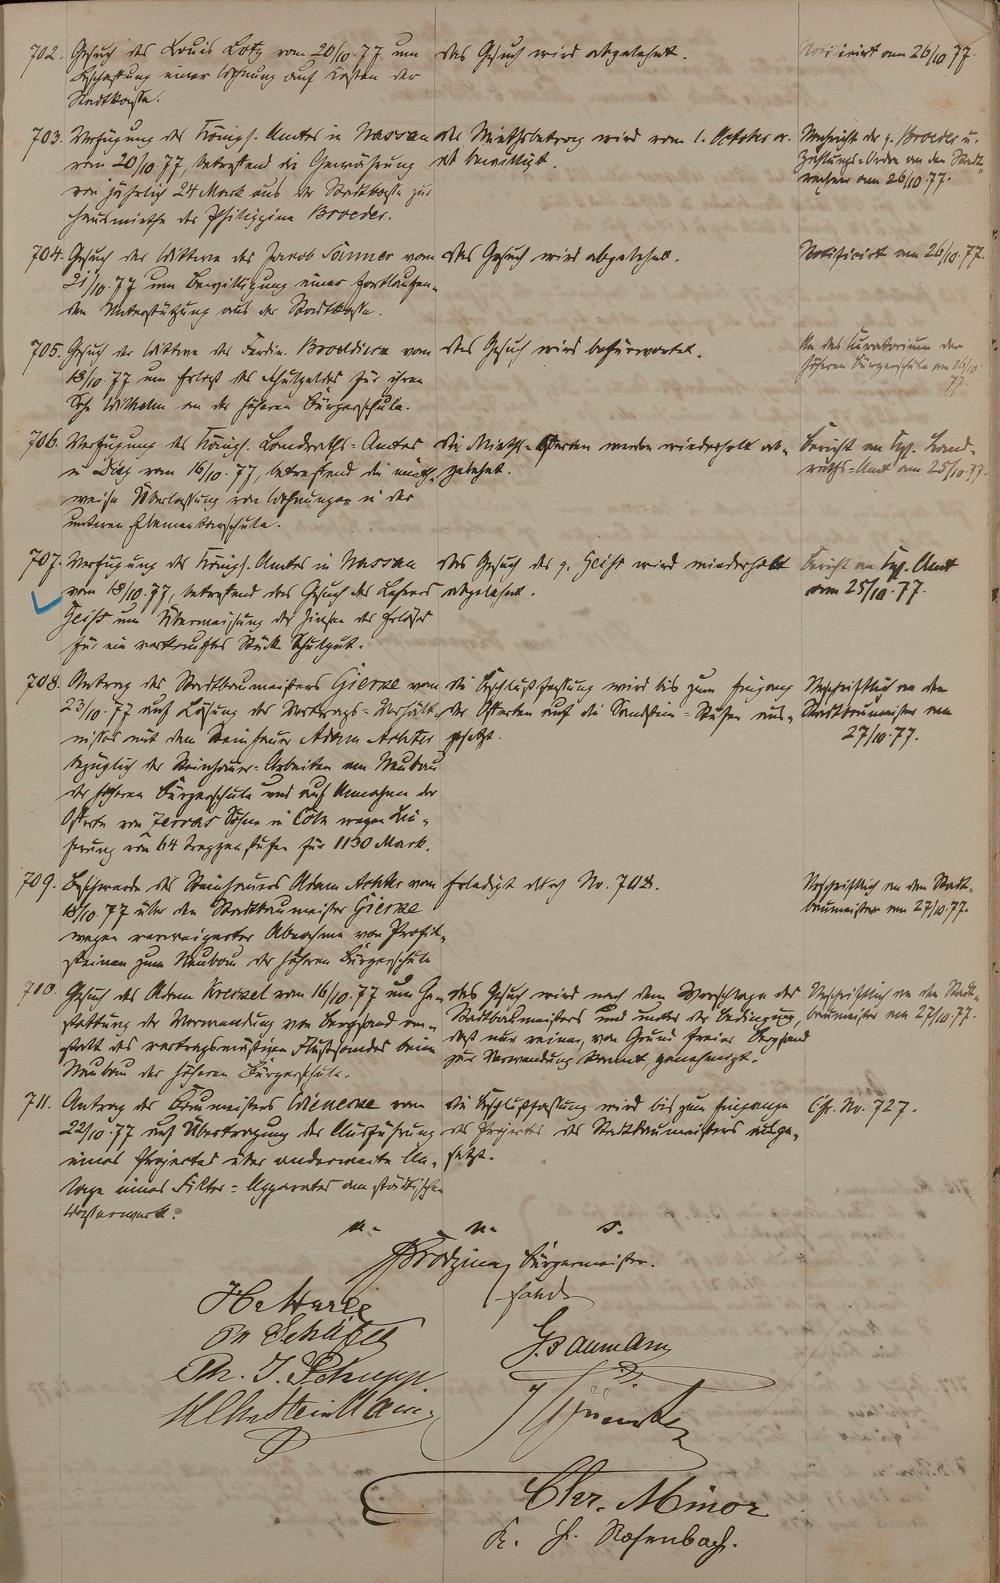 702. Gesuch des Louis Lotz vom 20/10.77 um
Beschaffung einer Wohnung auf Kosten der
Stadtkasse.
Das Gesuch wird abgelehnt.
am 26/10 77.
703. Verfügung des Königl. Amtes in Nassau
vom 20/10.77, betreffend die Gewährung
von jährlich 24 Mark aus der Stadtkasse zur
Hausmiethe der Philippine Broeder.
Der Miethbetrag wird vom 1. October cr.
ab bewilligt.
Nachricht der p. Broeder u.
Zahlungs-Ordre an den Stadt-
rechner am 26/10.77.
704. Gesuch der Wittwe des Jacob vom
21/10.77 um Bewilligung einer fortlaufen-
den Unterstützung aus der Stadtkasse.
Das Gesuch wird abgelehnt.
Notificirt am 26/10.77.
705. Gesuch der Wittwe des Ferdin. vom
18/10.77 um Erlaß des Schulgeldes für ihren
Sohn Wilhelm an der höheren Bürgerschule.
Das Gesuch wird befürwortet.
An das Curatorium der
höheren Bürgerschule am 26/10.
77.
706. Verfügung des Königl. Landraths-Amtes
zu Diez vom 16/10.77, betreffend die mieth-
weise Überlassung von Wohnungen in der
unteren Elementarschule.
Die Mieth-Offerten werden wiederholt ab-
gelehnt.
Bericht an Kgl. Land-
raths-Amt am 25/10.77.
707. Verfügung des Königl. Amtes in Nassau
vom 18/10.77, betreffend das Gesuch des Lehrers
Geiß um Überweisung der Zinsen des Erlöses
für ein verkauftes Stück Schulgut.
Das Gesuch des p. Geiß wird wiederholt
abgelehnt.
Bericht an Kgl. Amt
am 25/10.77.
708. Antrag des Stadtbaumeisters Gierke vom
23/10.77 auf Lösung des Vertrags-Verhält-
nisses mit dem Steinhauer Adam Achter
bezüglich der Steinhauer-Arbeiten am Neubau
der höheren Bürgerschule und auf Annahme der
Offerte von Zervas Söhne in Cöln wegen Lie-
ferung von 64 Treppenstufen für 1130 Mark.
Die Beschlußfassung wird bis zum Eingang
der Offerten auf die Sandstein-Stufen aus-
gesetzt.
Abschriftlich an den
Stadtbaumeister am
27/10.77.
709. Beschwerde des Steinhauers Adam Achter vom
18/10.77 über den Stadtbaumeister Gierke
wegen verweigerter Abnahme von Profil-
steinen zum Neubau der höheren Bürgerschule
Erledigt durch No. 708.
Abschriftlich an den Stadt-
baumeister am 27/10.77.
710. Gesuch des Adam vom 16/10.77 um Ge-
stattung der Verwendung von Bergsand an-
statt des vertragsmäßigen Flußsandes beim
Neubau der höheren Bürgerschule.
Das Gesuch wird nach dem Vorschlage des
Stadtbaumeisters und unter der Bedingung,
daß nur reiner, von Grund freier Bergsand
zur Verwendung kommt, genehmigt.
Abschriftlich an den Stadt-
baumeister am 27/10.77.
711. Antrag des Baumeisters Wieneke vom
22/10.77 auf Übertragung der Ausführung
eines Projectes über anderweite An-
lage eines Filter-Apparates am städtischen
Wasserwerk.
Die Beschlußfassung wird bis zum Eingange
des Projectes des Stadtbaumeisters ausge-
setzt.
Cfr. No. 727.
v. u. s.
Bürgermeister.
Ph. J. Schupp
G. Baumann
Chr. Minor
Rosenbach.